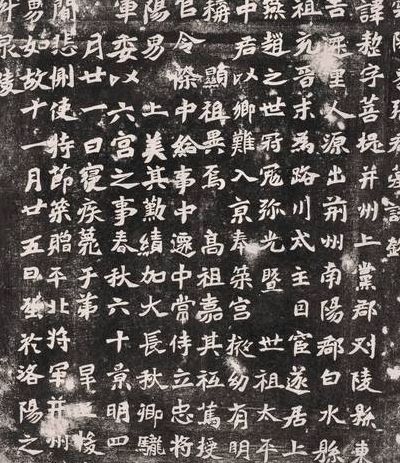 陽男張君墓誌銘
諱整字菩提并州上黨郡刘陵縣東
吉遷里人源出荊州南陽郡白水縣
祖充晉末為路川太主因宦遂居上
燕趙之世冠冕弥光暨世祖太平
中君以鄉難入京奉策宮掖幼有明
稱顯祖異焉高祖嘉其祗篤授
官令除中給事中遷中常侍立忠將
陽男上美其勤績加大長秋卿驪
軍委以六宮之事春秋六十景明四
月廿一日寢疾薨于第
聞悲惻使持節策贈平北將軍并州
男如故十一月廿五日葬於洛陽之
泉陵